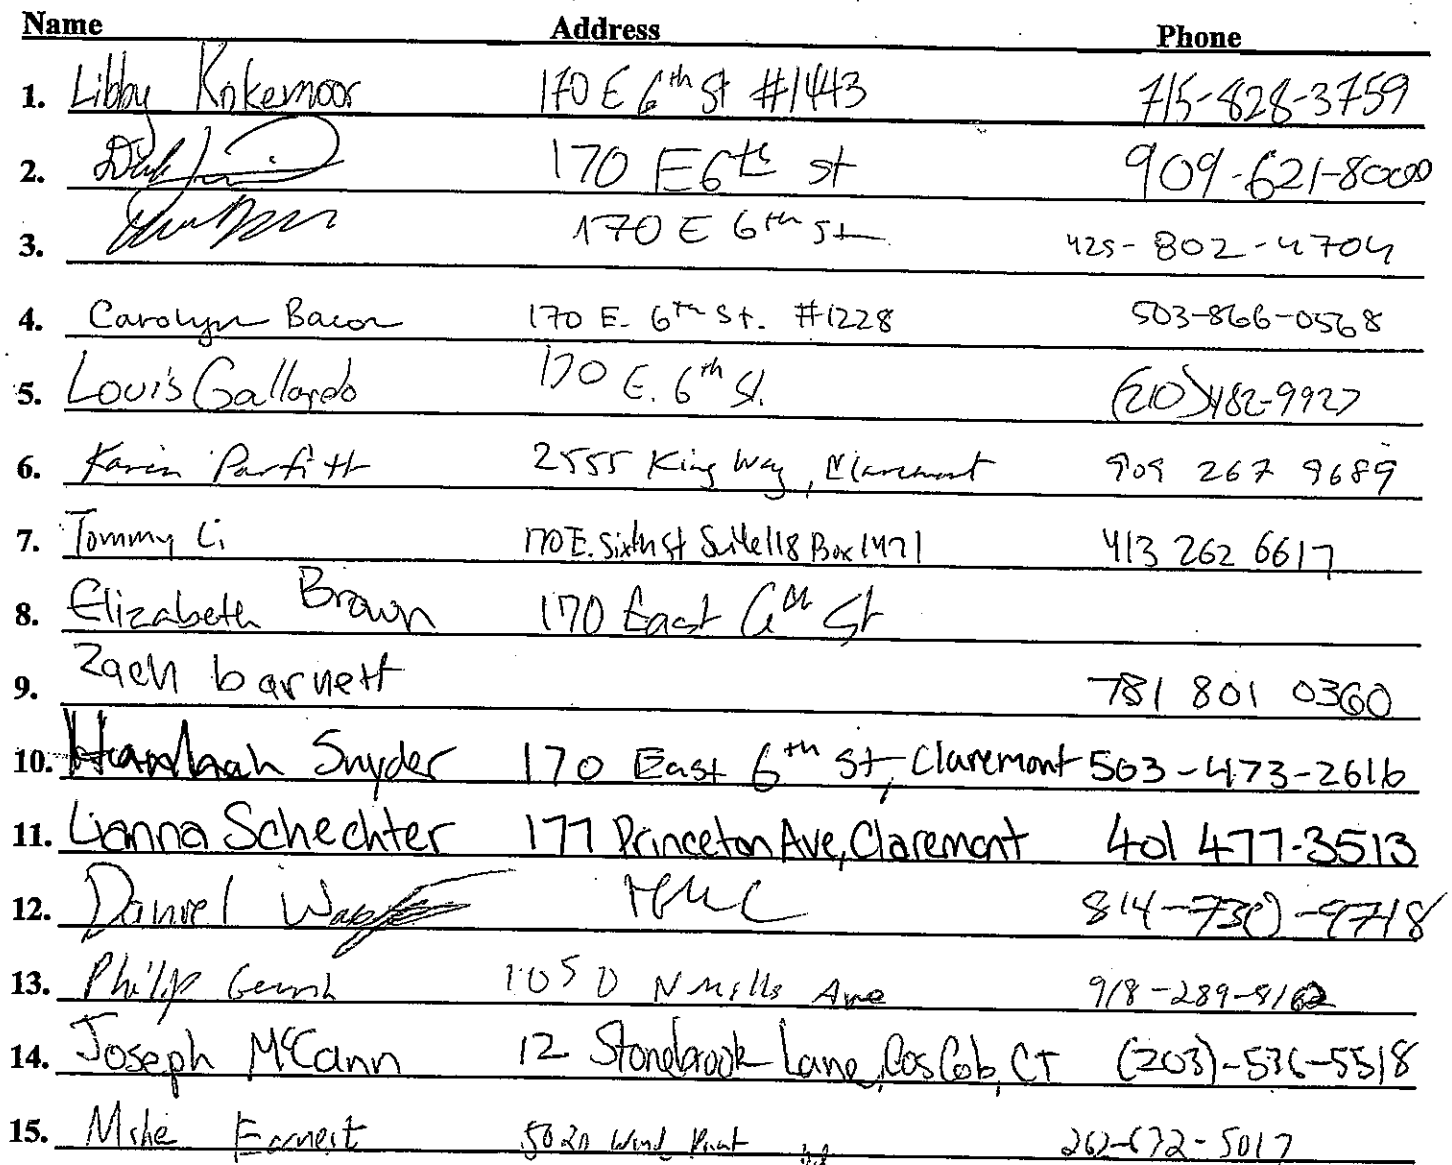 Name Address Phone
1. Libby Knkemoor 170 E 6th St #1443 715-828-3759
2. 170 E 6th St 909-621-8000
3. 170 E 6th St 425-802-4704
4. Carolyn Bacon 170 E. 6th St. #1228 503-866-0568
5. Louis Gallardo 170 E. 6th St. (210)482-9927
6. Karin Parfitt 2555 King Way, Claremont 909 267 9689
7. Tommy Li 170 E. Sixth St Suite 118 Box 1471 413 262 6617
8. Elizabeth Brown 170 East 6th St
9. Zach barnett 781 801 0360
10. Hannah Snyder 170 East 6th St, Claremont 503-473-2616
11. Lianna Schechter 177 Princeton Ave, Claremont 401 477-3513
12. Daniel HMC 814-730-9718
13. Philip 1050 N Mills Ave 918-289-8162
14. Joseph McCann 12 Stonebrook Lane, Cos Cob, CT (203)-536-5518
15. Mike Earnest 5020 Wind Point 262-672-5017